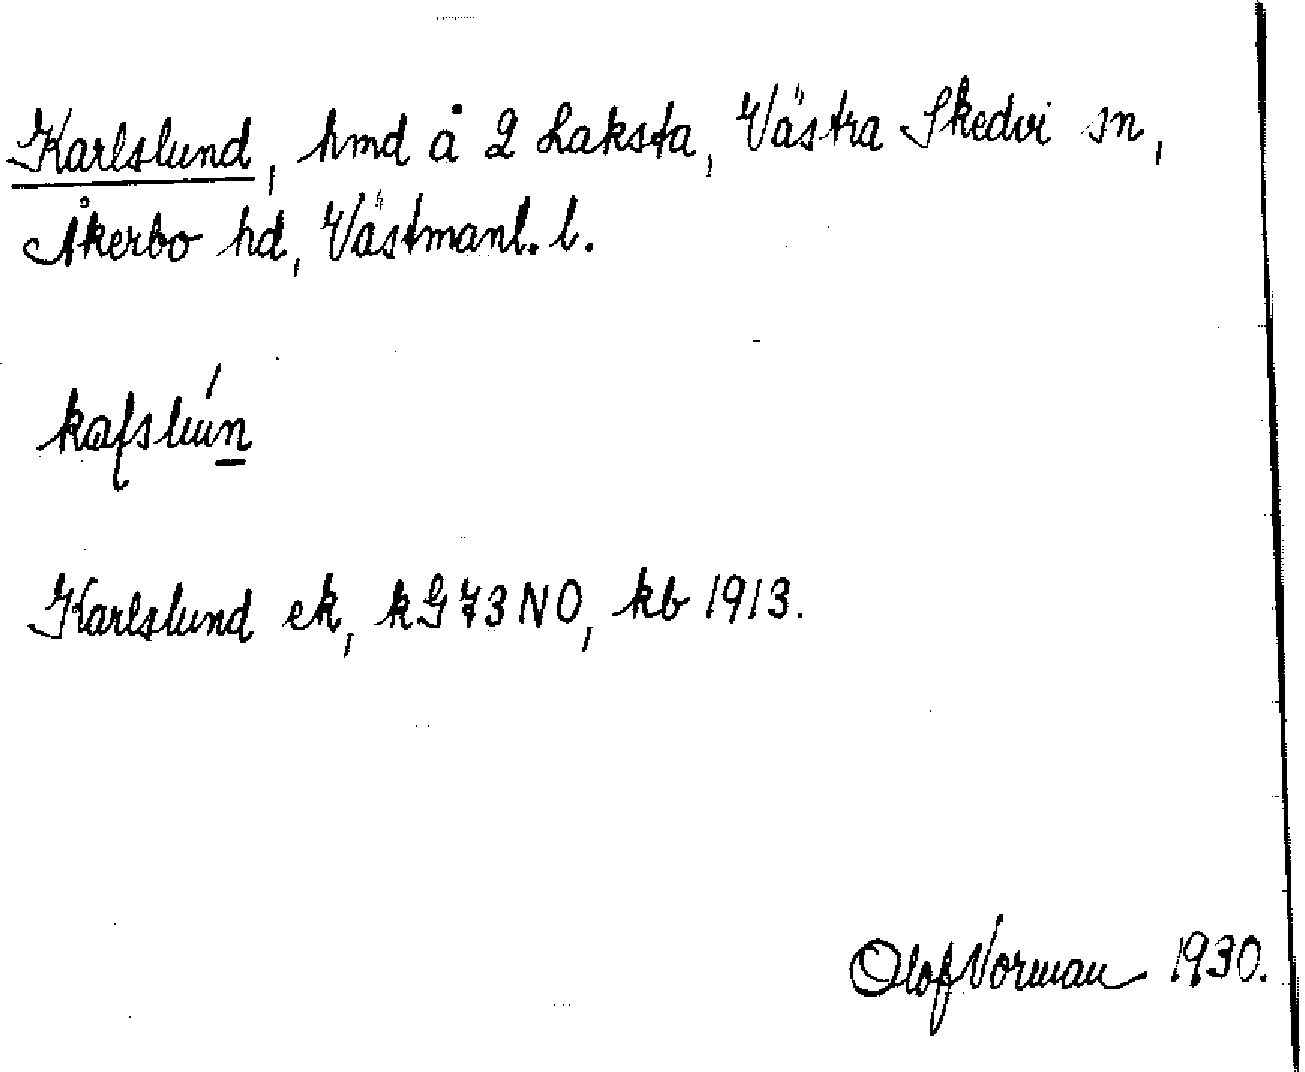 Karlslund, hmd å 2 Laksta, Västra Skedvi sn,
Åkerbo hd, Västmanl. l.
kafslun
Karlslund ek, kG73NO, kb 1913.
Olof Norman 1930.